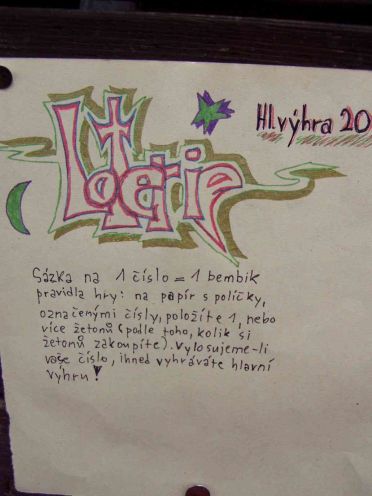 Loterie
Hl.výhra 20
Sázka na 1 číslo = 1 bembik
pravidla hry: na papír s políčky,
označenými čísly, položíte 1, nebo
více žetonů (podle toho, kolik si
žetonů zakoupíte). Vylosujeme-li
vaše číslo, ihned vyhráváte hlavní
výhru!